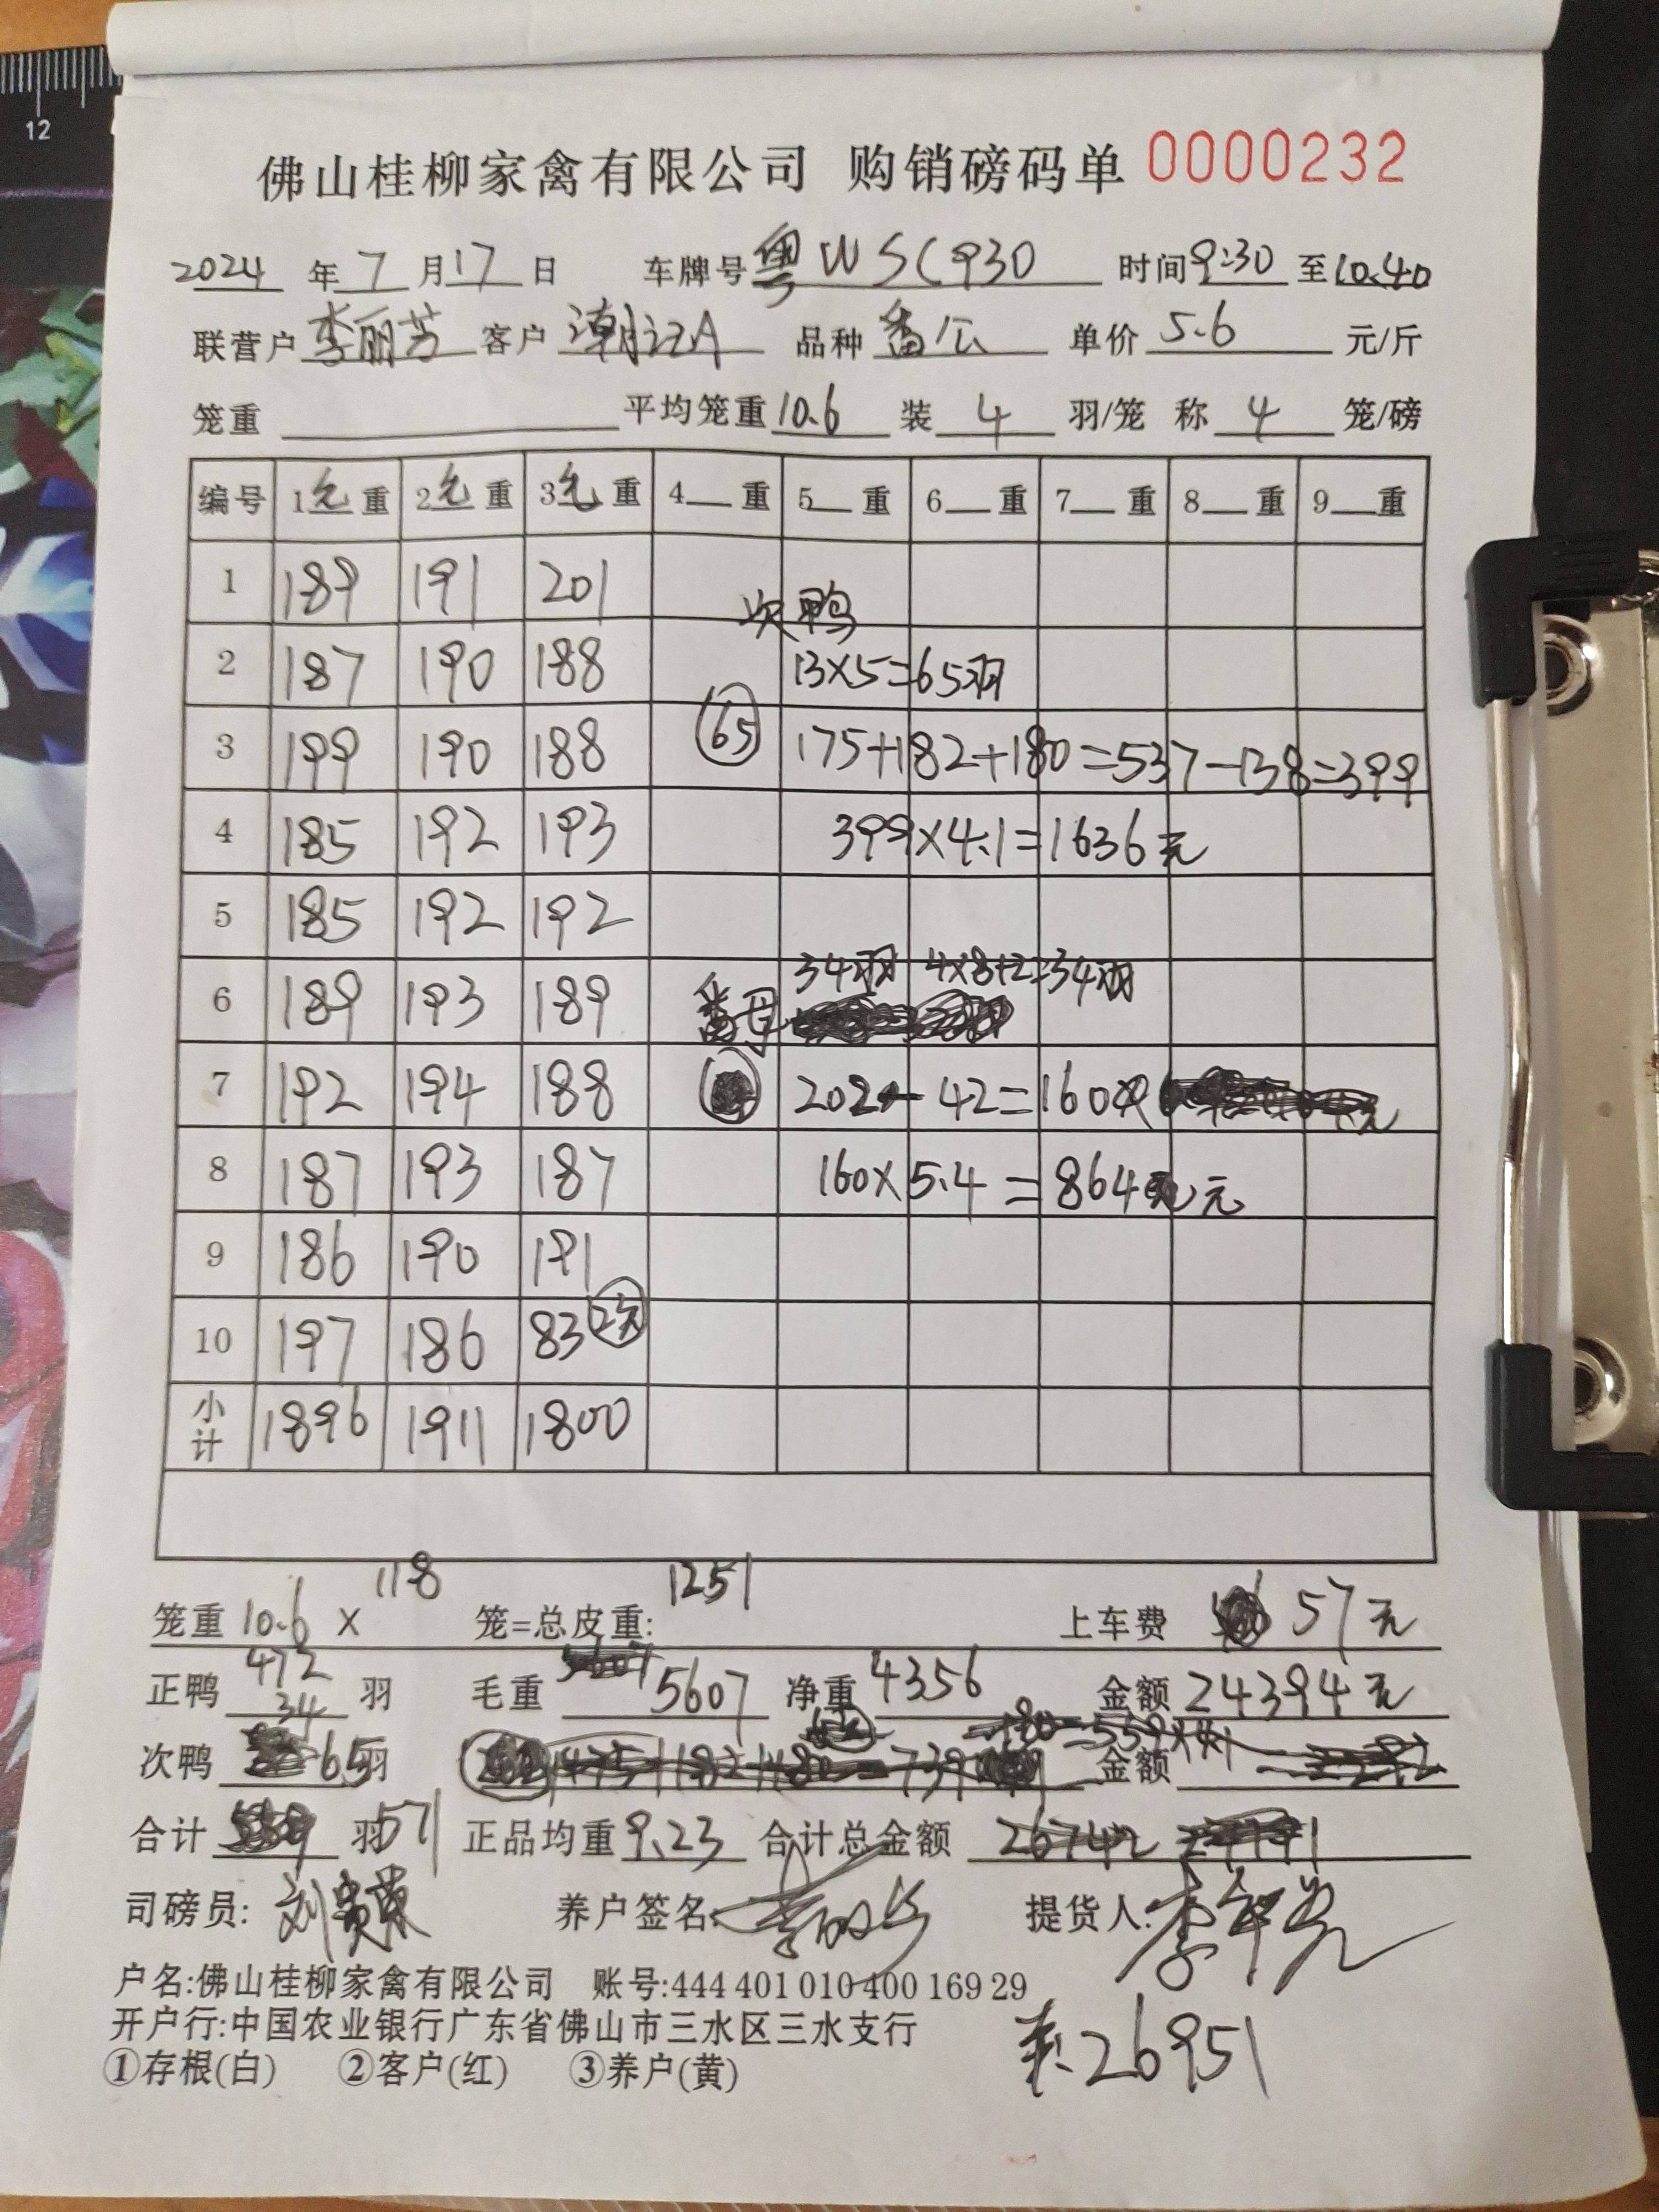 12
佛山桂柳家禽有限公司 购销磅码单 0000232
2024 年 7 月 17 日 车牌号 粤WSC930 时间 9:30 至 10.40
联营户 李丽芳 客户 潮记A 品种 番公 单价 5.6 元/斤
笼重 平均笼重 10.6 装 4 羽/笼 称 4 笼/磅
编号 1毛重 2毛重 3毛重 4 重 5 重 6 重 7 重 8 重 9 重
1 189 191 201
次鸭
2 187 190 188 13×5=65羽
3 199 190 188 65 175+182+180=537-138=399
4 185 192 193 399×4.1=1636元
5 185 192 192
34羽 4×8+2=34羽
6 189 193 189 番母
7 192 194 188 202-42=160
8 187 193 187 160×5.4=864元
9 186 190 191
10 197 186 83 2笼
小计 1896 1911 1800
笼重 10.6 × 118 笼=总皮重: 1251 上车费 57元
正鸭 472 34 羽 毛重 5607 净重 4356 金额 24394元
次鸭 65羽 金额
合计 羽 571 正品均重 9.23 合计总金额 26742
司磅员: 养户签名: 提货人:
户名:佛山桂柳家禽有限公司 账号:444 401 010 400 169 29
开户行:中国农业银行广东省佛山市三水区三水支行
①存根(白) ②客户(红) ③养户(黄)
26951